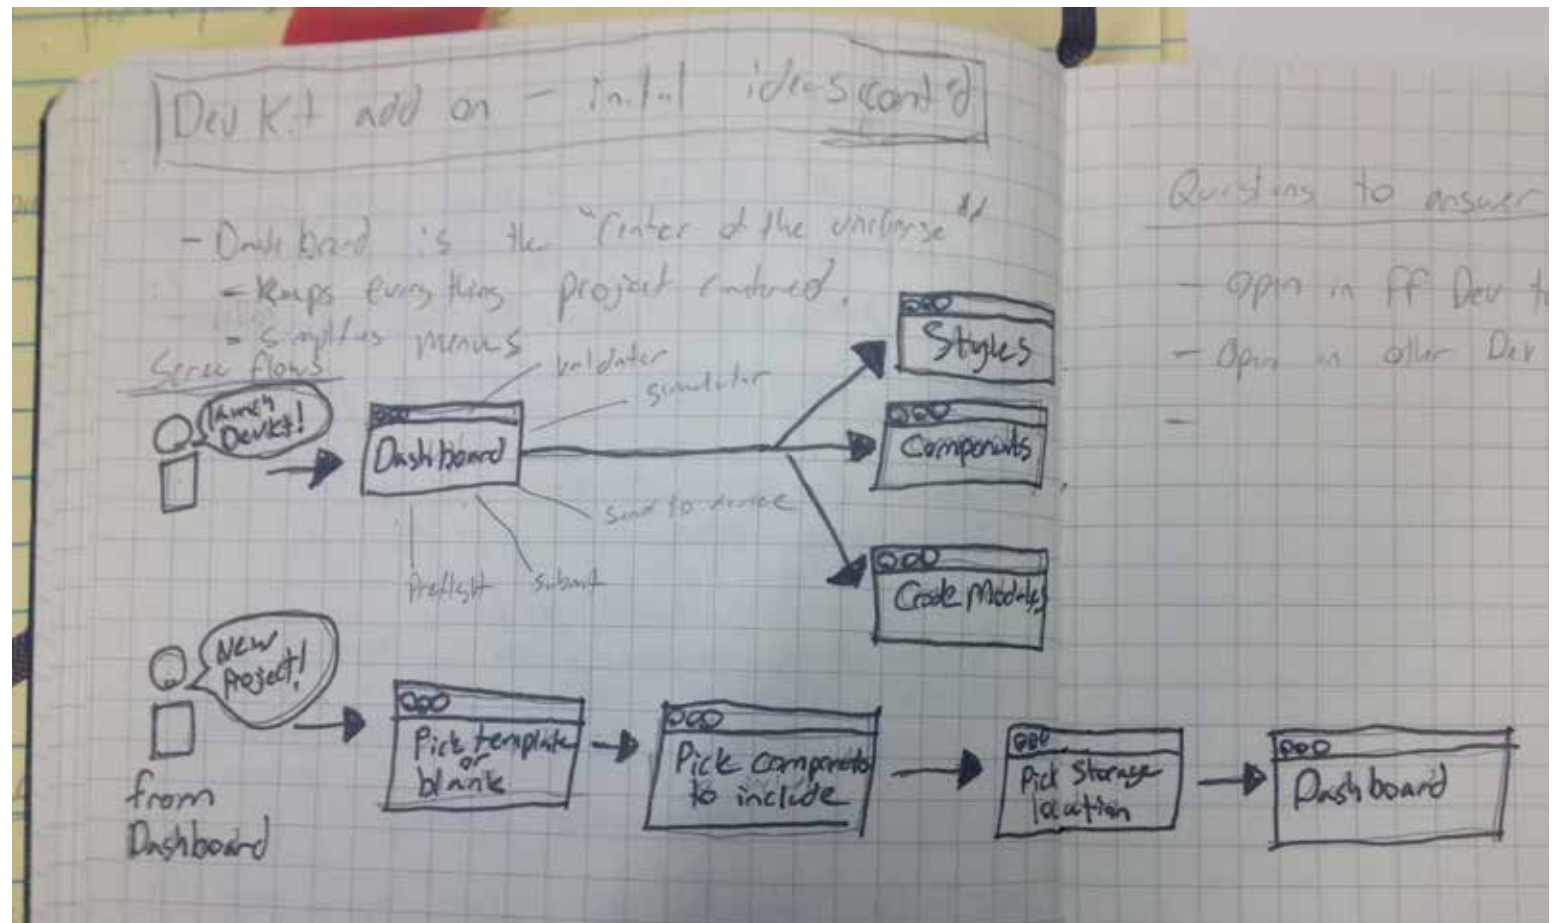 DevKit add on - initial ideas cont'd
- Dashboard is the "Center of the universe"
- Keeps everything project centered.
- Simplifies menus
Screen flows
validator
simulator
Launch
DevKit!
Dashboard
Styles
Components
Code Modules
send to device
Preflight
submit
New
Project!
from
Dashboard
Pick template
or
blank
Pick components
to include
Pick Storage
location
Dashboard
Questions to answer
- Open in FF Dev
- Open in other Dev
-